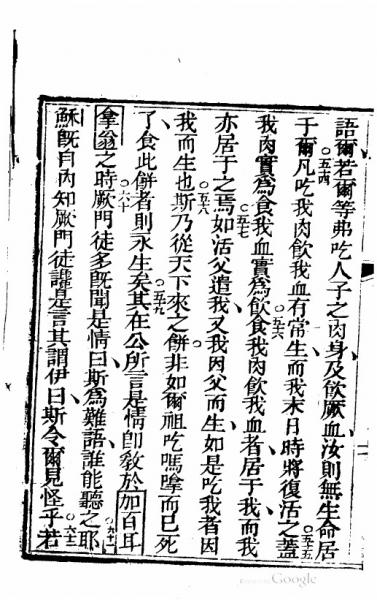 語爾若爾等弗吃人子之肉身及飲厥血汝則無生命居
于爾○五四凡吃我肉飲我血有常生而我末日時將復活之○五五蓋
我肉實為食我血實為飲○五六食我肉飲我血者居于我而我
亦居于之焉○五七如活父遣我又我因父而生如是吃我者因
我而生也○五八斯乃從天下來之餅非如爾祖吃嗎而已死
了食此餅者則永生矣○五九其在公所言是情即教於加百耳
拿翁之時○六十厥門徒多既聞是情曰斯為難語誰能聽之○六一耶
穌既自內知厥門徒譏是言其謂伊曰斯令爾見怪乎○六二若
Google